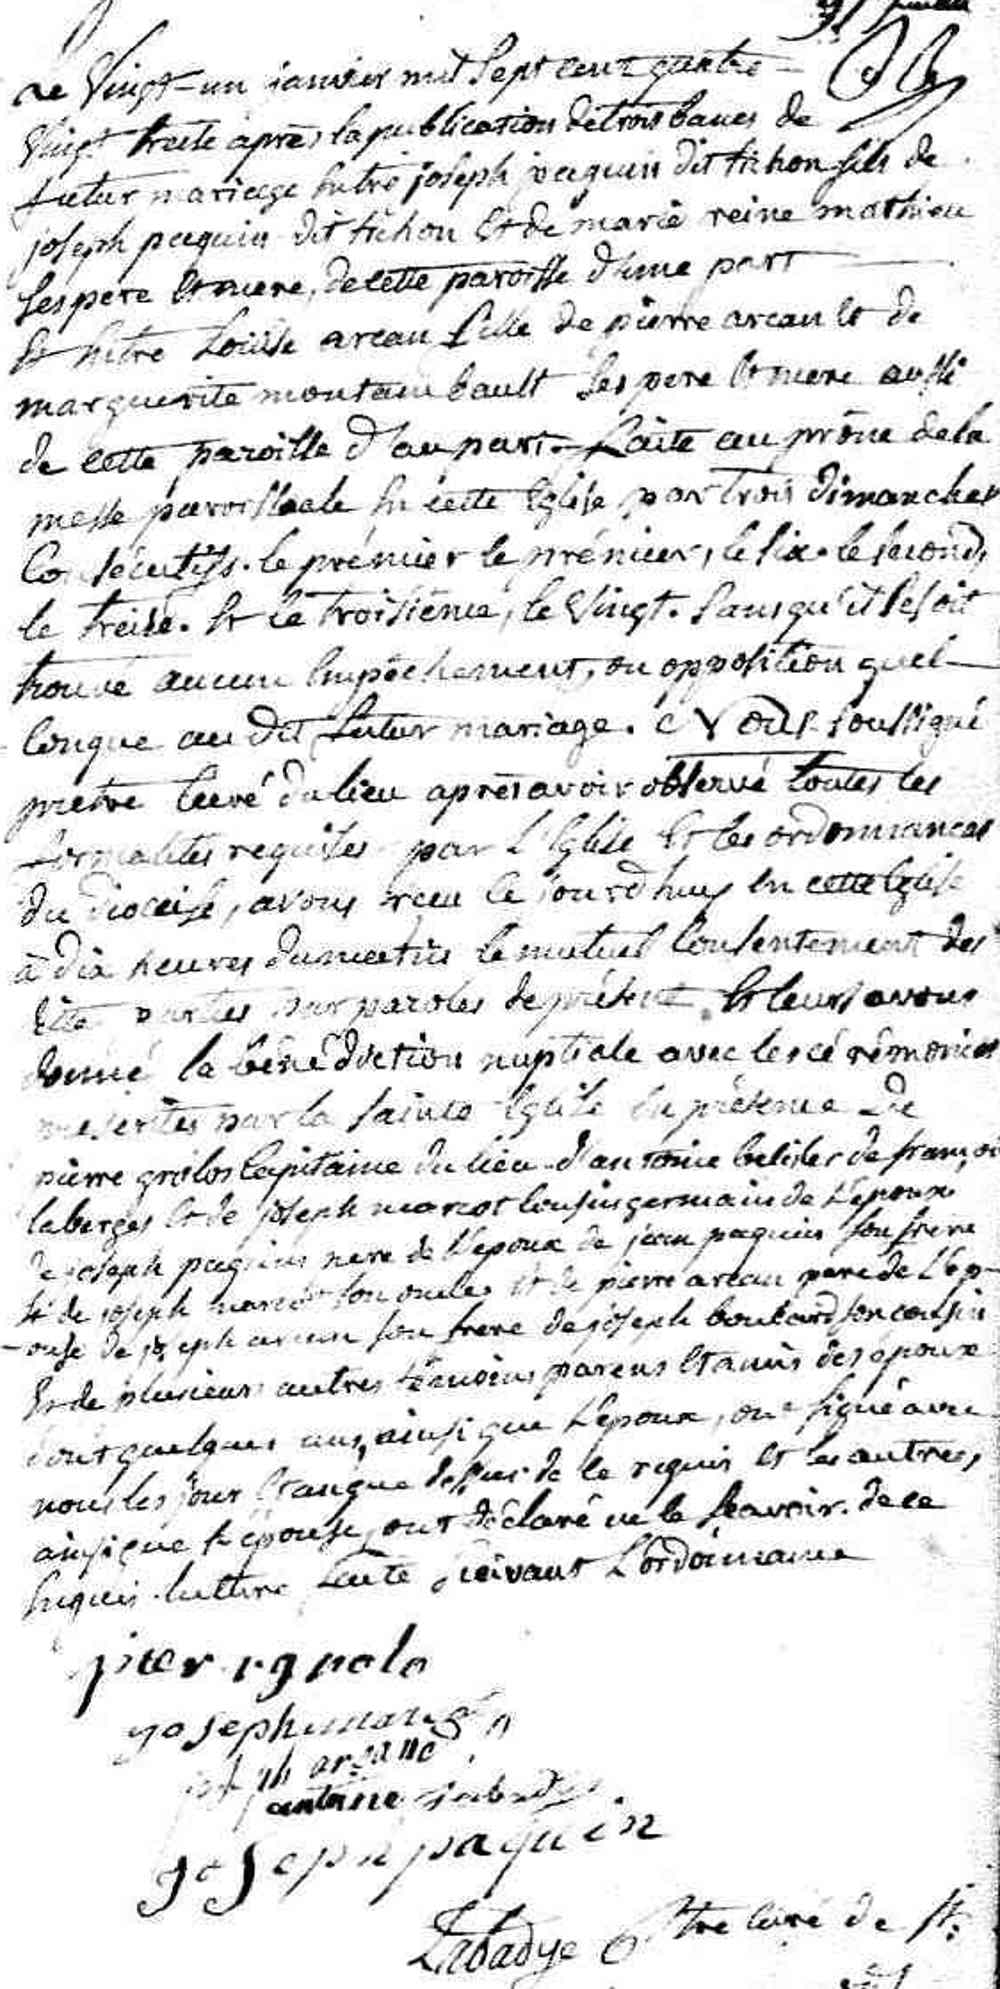 Le Vingt-un janvier mil Sept cent quatre
Vingt treize après la publication de trois bancs de
futur mariage Entre joseph paquin dit tichon fils de
joseph paquin dit tichon Et de marie reine mathieu
Ses pere Et mere, de cette paroisse d'une part
Et Entre Loüise arcan fille de pierre arcan Et de
marguerite montambault Ses pere Et mere aussi
de cette paroisse d'au part. Faite au prône de la
messe paroissiale En cette Eglise par trois dimanches
Consécutifs. le prémier le prémier, le six. le second,
le treize. Et le troisiéme, le Vingt. Sans qu'il se soit
trouvé aucun Empêchement, ou opposition quel-
conque au dit futur mariage. Nous Soussigné
pretre Curé du lieu après avoir observé toutes les
formalités requises par L'Eglise Et les ordonnances
du diocèse, avons reçu ce jourd'huy En cette Eglise
à dix heures du matin le mutuel Consentement des
dites parties par paroles de présent Et leurs avons
donné la bénédiction nuptiale avec les cérémonies
prescrites par la Sainte Eglise En présence De
pierre grolos Capitaine du lieu d'antoine belisle de françois
laberges Et de joseph marcot Cousin germain de L'epoux
de joseph paquin pere de L'époux de jean paquin Son frere
Et de joseph marcot Son oncle Et de pierre arcan pere de L'ép-
ouse de joseph arcan Son frere de joseph boutard Son cousin
Et de plusieurs autres témoins parens Et amis des époux
dont quelques uns, ainsi que L'epoux, ont Signé avec
nous les jour Et an que dessus de ce requis Et les autres,
ainsi que L'épouse, ont déclaré ne le Sçavoir. de ce
Enquis. lecture faite Suivant L'ordonnance
joseph marcot
joseph arcand
antoine
joseph paquin
Labadye Ptre Curé de St.